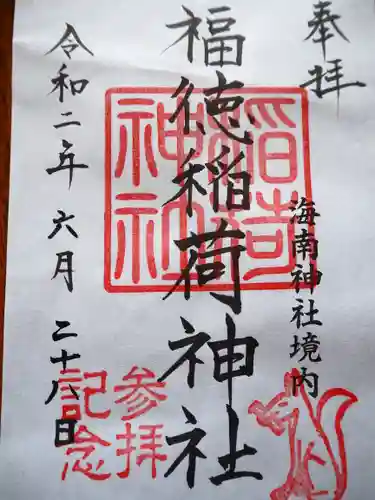 奉拝
海南神社境内
福徳稲荷神社
稲荷
神社
令和二年 六月 二十八日
参拝
記念